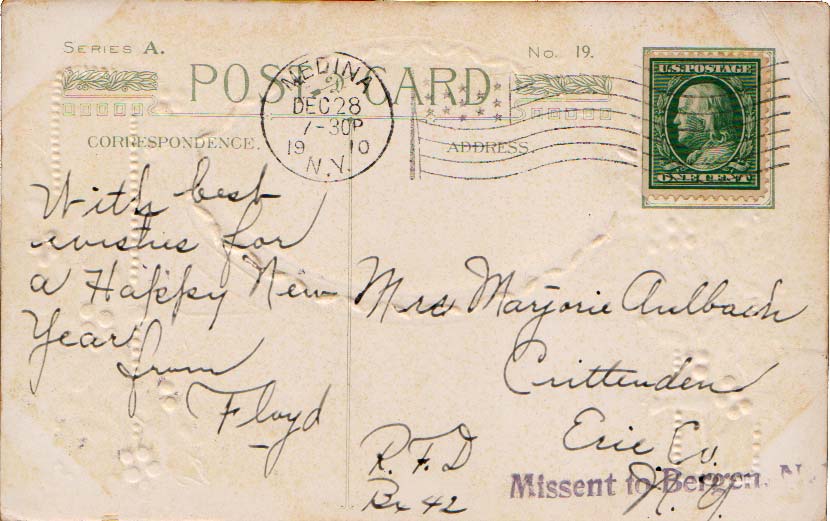 SERIES A.
No. 19.
POST CARD
U.S. POSTAGE
ONE CENT
MEDINA
DEC 28
7-30P
19 10
N.Y.
CORRESPONDENCE.
ADDRESS.
With best
wishes for
a Happy New
Year
from
Floyd
Mrs Marjorie Aulbach
Crittenden
Erie Co.
N. Y.
R. F. D
Bx 42
Missent to Bergen, N.